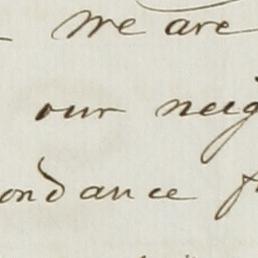 We are
our neig
ondance f